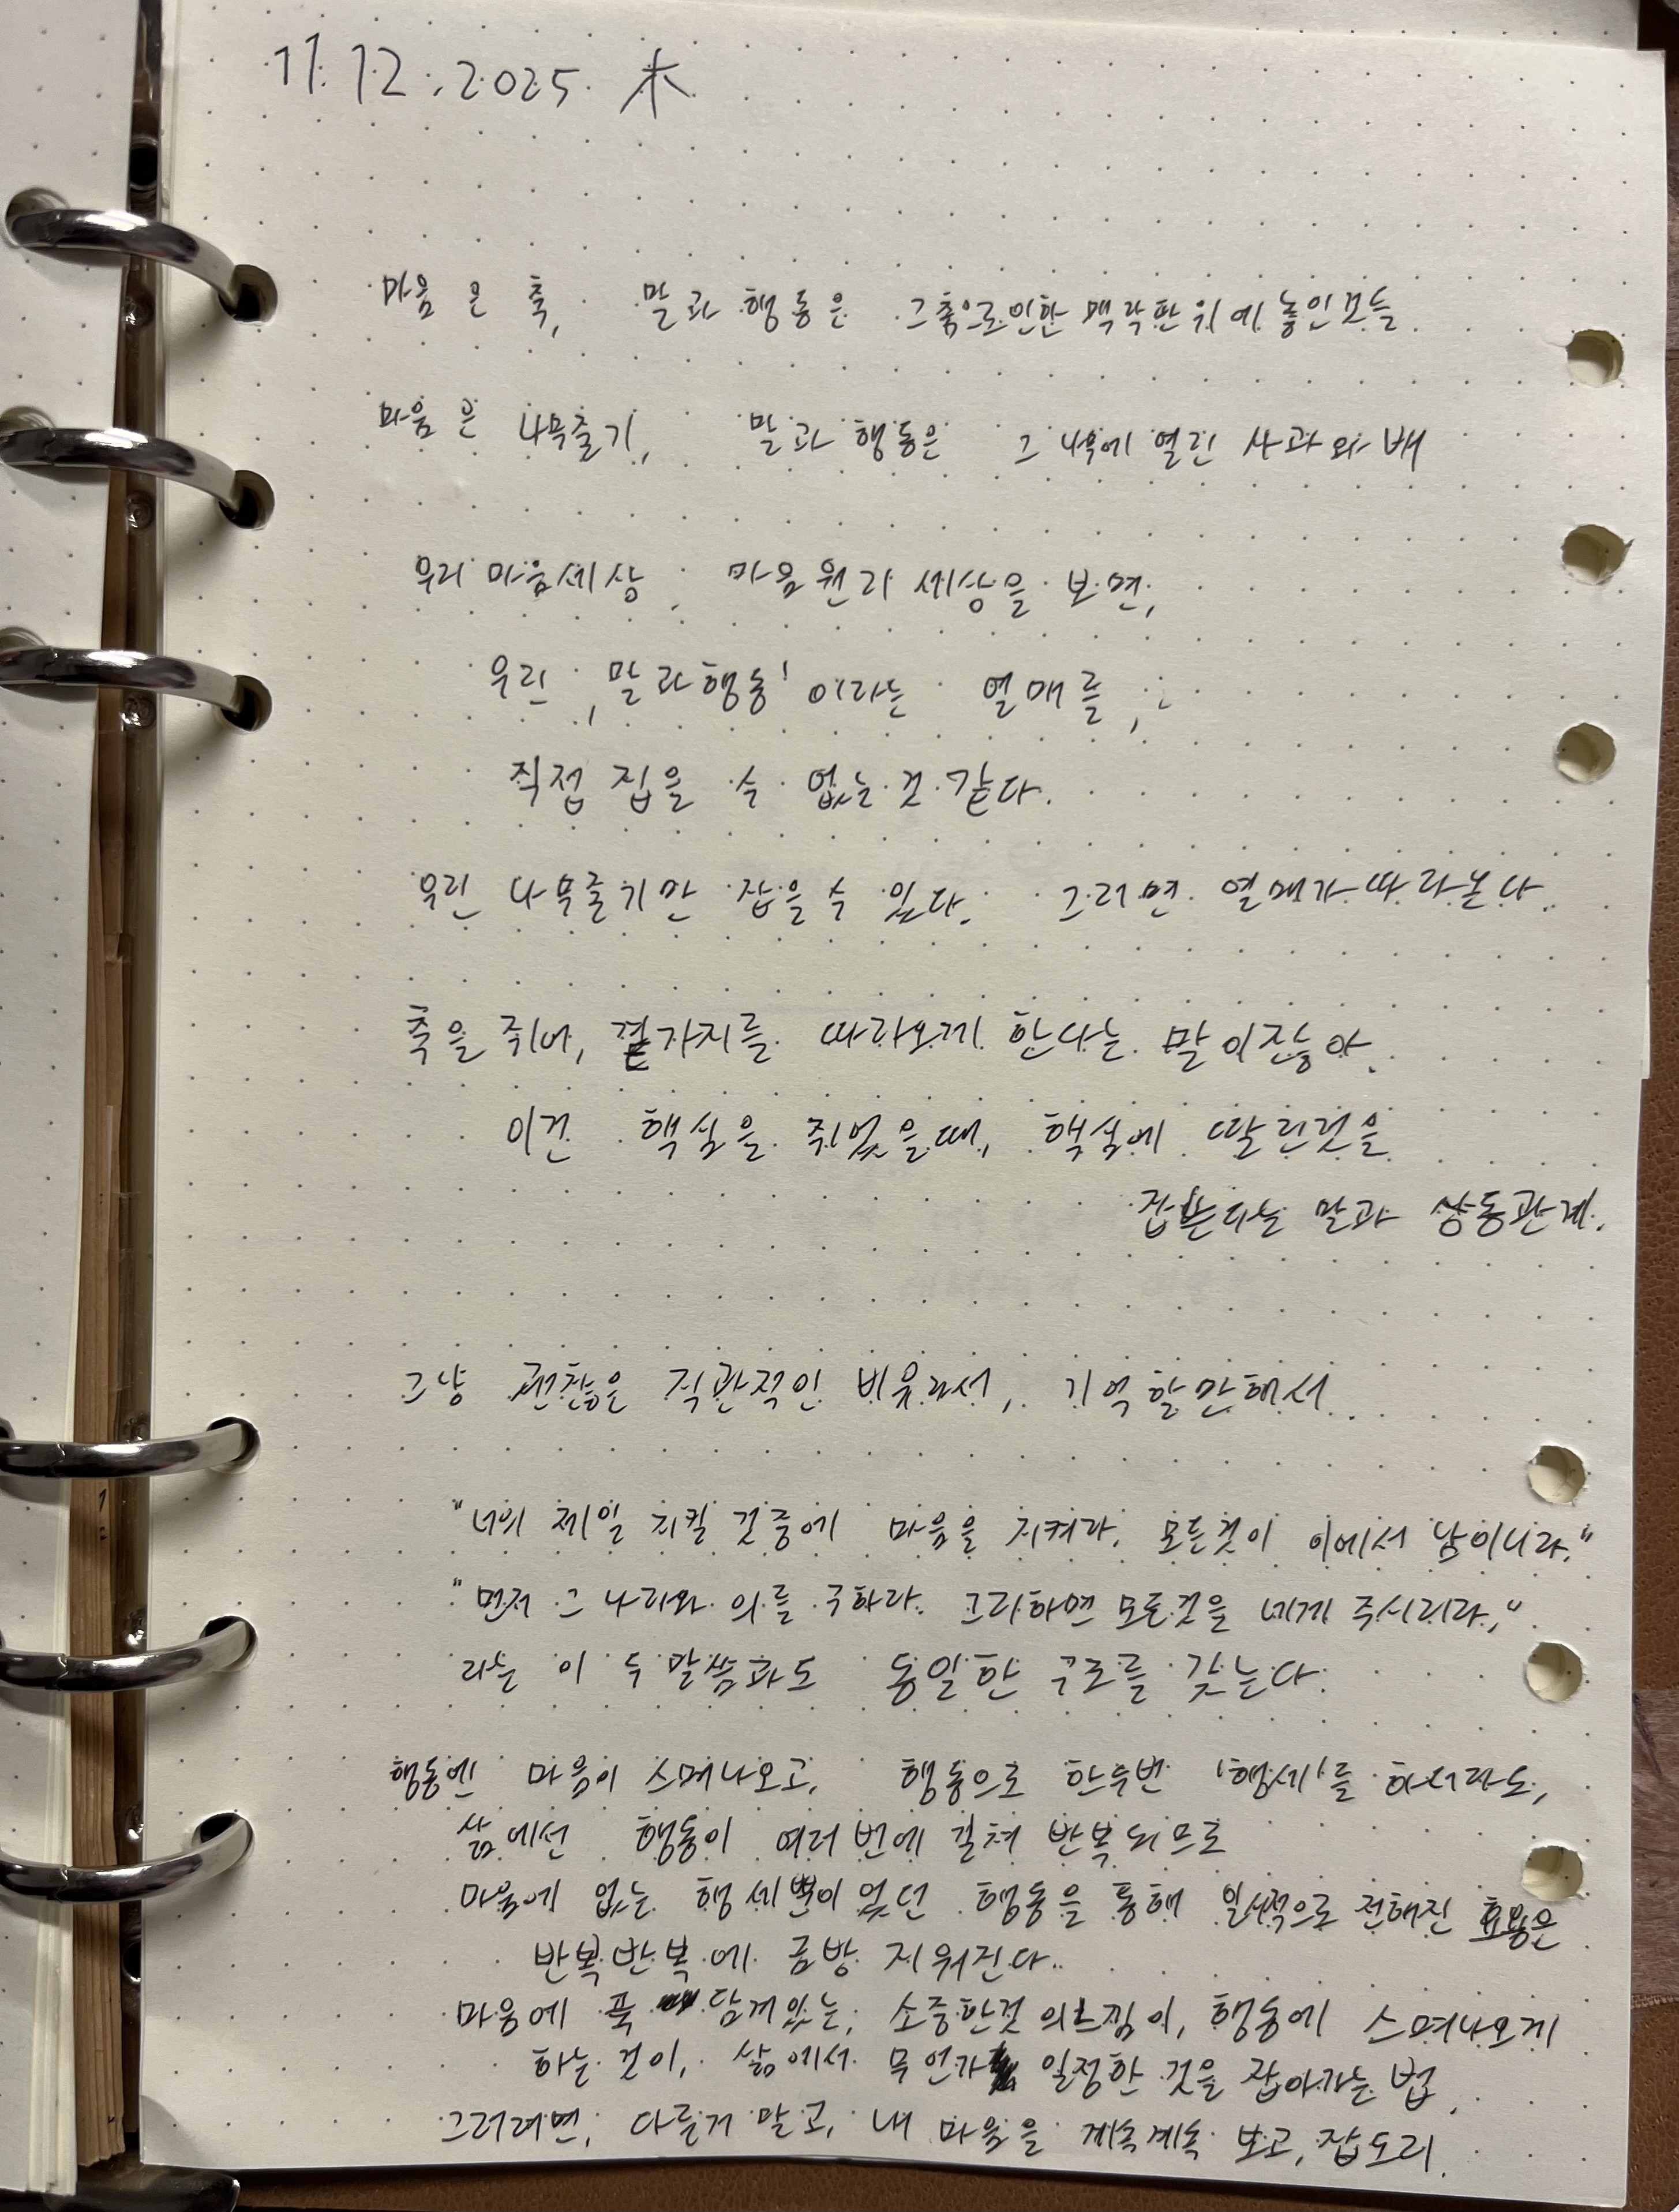 11.12.2025. 木
마음은 축, 말과 행동은 그 축으로인한 맥락판위에 놓인모듈
마음은 나무줄기, 말과 행동은 그 나무에 열린 사과와 배
우리 마음세상, 마음원리 세상을 보면,
우린 '말과행동'이라는 열매를,
직접 집을 수 없는 것 같다.
우린 나무줄기만 잡을 수 있다. 그러면 열매가 따라온다.
축을 쥐어, 곁가지를 따라오게 한다는 말이잖아.
이건 핵심을 쥐었을때, 핵심에 딸린것을
잡는다는 말과 상동관계.
그냥 괜찮은 직관적인 비유라서, 기억할만해서
"너의 제일 지킬 것중에 마음을 지켜라. 모든것이 이에서 남이니라."
"먼저 그 나라와 의를 구하라. 그리하면 모든것을 네게 주시리라."
라는 이 두 말씀과도 동일한 구조를 갖는다.
행동엔 마음이 스며나오고, 행동으로 한두번 '행세'를 하더라도,
삶에선 행동이 여러번에 걸쳐 반복되므로
마음에 없는 행세뿐이었던 행동을 통해 일시적으로 전해진 효용은
반복반복에 금방 지워진다.
마음에 푹 담겨있는, 소중한것의 느낌이, 행동에 스며나오게
하는 것이, 삶에서 무언가 일정한 것을 잡아가는 법.
그러려면, 다른거 말고, 내 마음을 계속계속 보고, 잡도리.